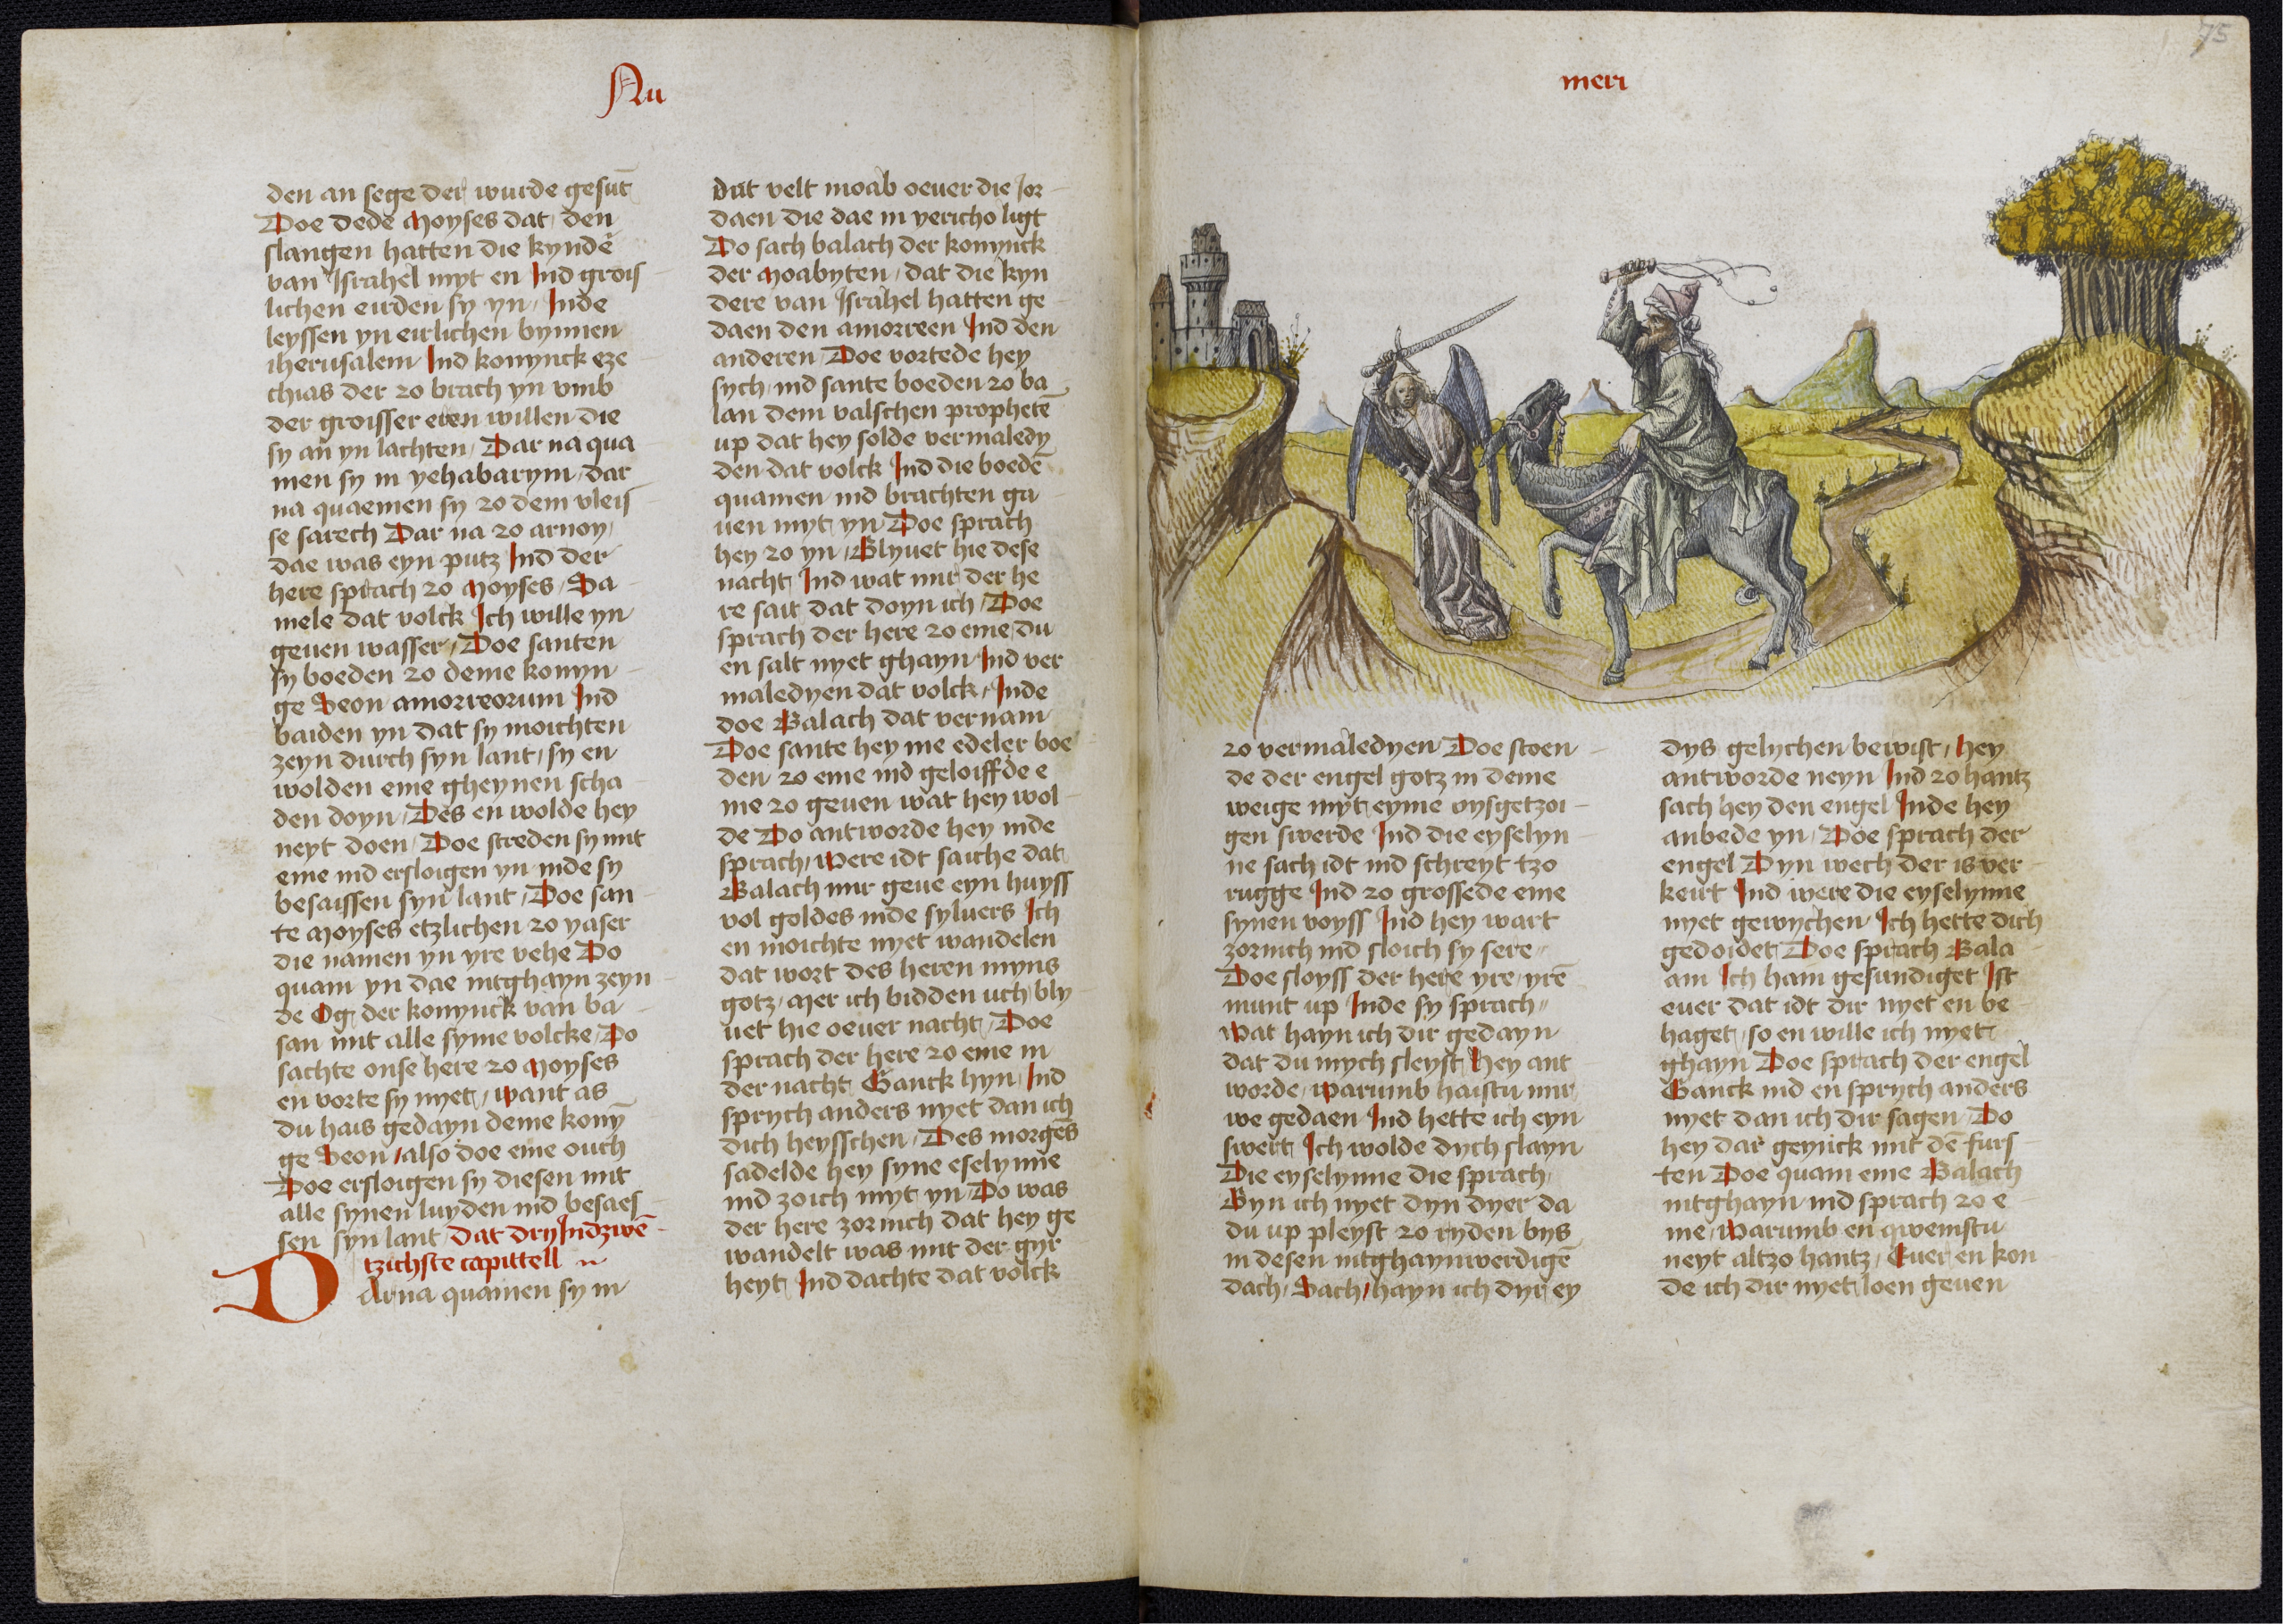 Nu
den an sege der wurde gesūt
Doe dede Moyses dat den
slangen hatten die kyndē
van Israhel myt en Ind grois
lichen eirden sy yn / Inde
leyssen yn eirlichen bynnen
iherusalem Ind konynck eze
chias der zo brach yn vmb
der groisser eren willen die
sy an yn lachten / Dar na qua
men sy in yehabarym / dar
na quaemen sy zo dem vleis
se sarech Dar na zo arnoy /
dae was eyn putz Ind der
here sprach zo Moyses / Sa
mele dat volck Ich wille yn
geuen wasser / Doe santen
sy boeden zo deme konyn
ge Seon amorreorum Ind
baiden yn dat sy moichten
zeyn durch syn lant / sy en
wolden eme gheynen scha
den doyn / Des en wolde hey
neyt doen / Doe streden sy mit
eme ind ersloigen yn inde sy
besaissen syn lant / Doe san
te Moyses etzlichen zo yaser
die namen yn yre vehe Do
quam yn dae intghayn zeyn
de Og der konynck van ba
san mit alle syme volcke / Do
sachte onse here zo Moyses
en vorte sy nyet / want as
du hais gedayn deme konȳ
ge Seon / also doe eme ouch
Doe ersloigen sy diesen mit
alle synen luyden ind besaes
sen syn lant / Dat dry Indzwē
tzichste capittell
Darna quamen sy in
dat velt moab oeuer die Jor
daen die dae in yericho ligt
Do sach balach der konynck
der Moabyten / dat die kyn
dere van Israhel hatten ge
daen den amorreen Ind den
anderen / Doe vortede hey
sych / ind sante boeden zo ba
lan dem valschen prophetē
up dat hey solde vermaledy
den dat volck Ind die boedē
quamen ind brachten ga
uen myt yn Doe sprach
hey zo yn / Blyuet hie dese
nacht Ind wat mir der he
re sait dat doyn ich / Doe
sprach der here zo eme / du
en salt nyet ghayn Ind ver
maledyen dat volck / Inde
doe Balach dat vernam
Doe sante hey me edeler boe
den zo eme ind geloiffde e
me zo geuen wat hey wol
de Do antworde hey inde
sprach / were idt saiche dat
Balach mir geue eyn huyss
vol goldes inde syluers Ich
en moichte nyet wandelen
dat wort des heren myns
gotz / Mer ich bidden uch bly
uet hie oeuer nacht / Doe
sprach der here zo eme in
der nacht Ganck hyn / Ind
sprych anders nyet dan ich
dich heysschen / Des morgēs
sadelde hey syne eselynne
ind zoich myt yn / Do was
der here zornich dat hey ge
wandelt was mit der gyr
heyt Ind dachte dat volck
75
meri
zo vermaledyen / Doe stoen
de der engel gotz in deme
weige myt eyme uysgetzoi
gen swerde Ind die eyselyn
ne sach idt ind schreyt tzo
rugge Ind zo grossede eme
synen voyss Ind hey wart
zornich ind sloich sy sere
Doe sloyss der here yre / yrē
munt up Inde sy sprach
Wat hayn ich dir gedayn
dat du mych sleyst Hey ant
worde / warumb haistu mir
we gedaen Ind hette ich eyn
swert Ich wolde dych slayn
Die eyselynne die sprach /
Byn ich nyet dyn dyer da
du up pleyst zo ryden bys
in desen intghaynwerdigē
dach / Sach / hayn ich dyr ey
dys gelychen bewist / hey
antworde neyn Ind zo hantz
sach hey den engel Inde hey
anbede yn / Doe sprach der
engel Dyn wech der is ver
keirt Ind were die eyselynne
nyet gewychen Ich hette dich
gedoidet Doe sprach Bala
am Ich ham gesundiget Ist
euer dat idt dir nyet en be
haget / so en wille ich nyet
ghayn Doe sprach der engel
Ganck ind en sprych anders
nyet dan ich dir sagen / Do
hey dar geynck mit dē furs
ten Doe quam eme Balach
intghayn ind sprach zo e
me / Warumb en qwemstu
neyt altzo hantz / Euer en kon
de ich dir nyet loen geuen